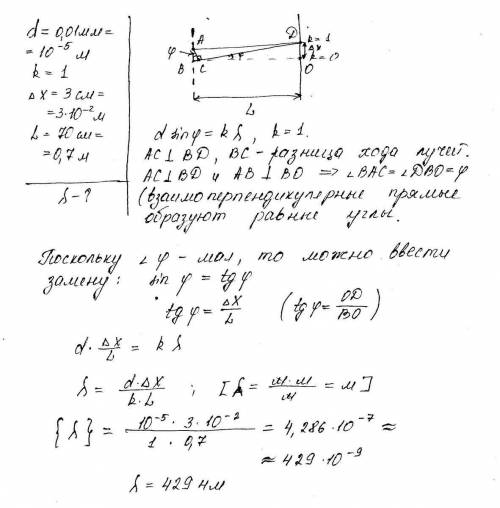 d = 0,01мм =
= 10⁻⁵ м
k = 1
Δx = 3 см =
= 3·10⁻² м
L = 70 см =
= 0,7 м
λ - ?
A
D
k = 1
Δx
φ
B
C
k = 0
O
L
d sinφ = k λ, k = 1.
AC ⊥ BD, BC - разница хода лучей.
AC ⊥ BD и AB ⊥ BO => ∠BAC = ∠DBO = φ
(взаимоперпендикулярные прямые
образуют равные углы.
Поскольку ∠φ - мал, то можно ввести
замену: sin φ = tg φ
tg φ = Δx/L (tg φ = OD/BO)
d · Δx/L = k λ
λ = d·Δx/k·L ; [λ = м·м/м = м]
{λ} = 10⁻⁵ · 3·10⁻²/1 · 0,7 = 4,286·10⁻⁷ ≈
≈ 429·10⁻⁹
λ = 429 нм